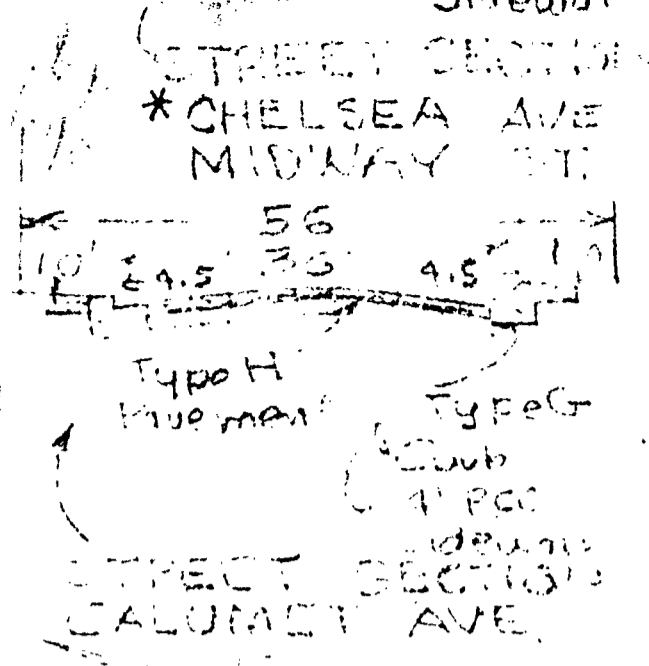 STREET SECTION
*CHELSEA AVE
MIDWAY ST.
56
10' 4.5' 36' 4.5'
Type H
Pavement
Type G
Curb
4" PCC
STREET SECTION
CALUMET AVE.